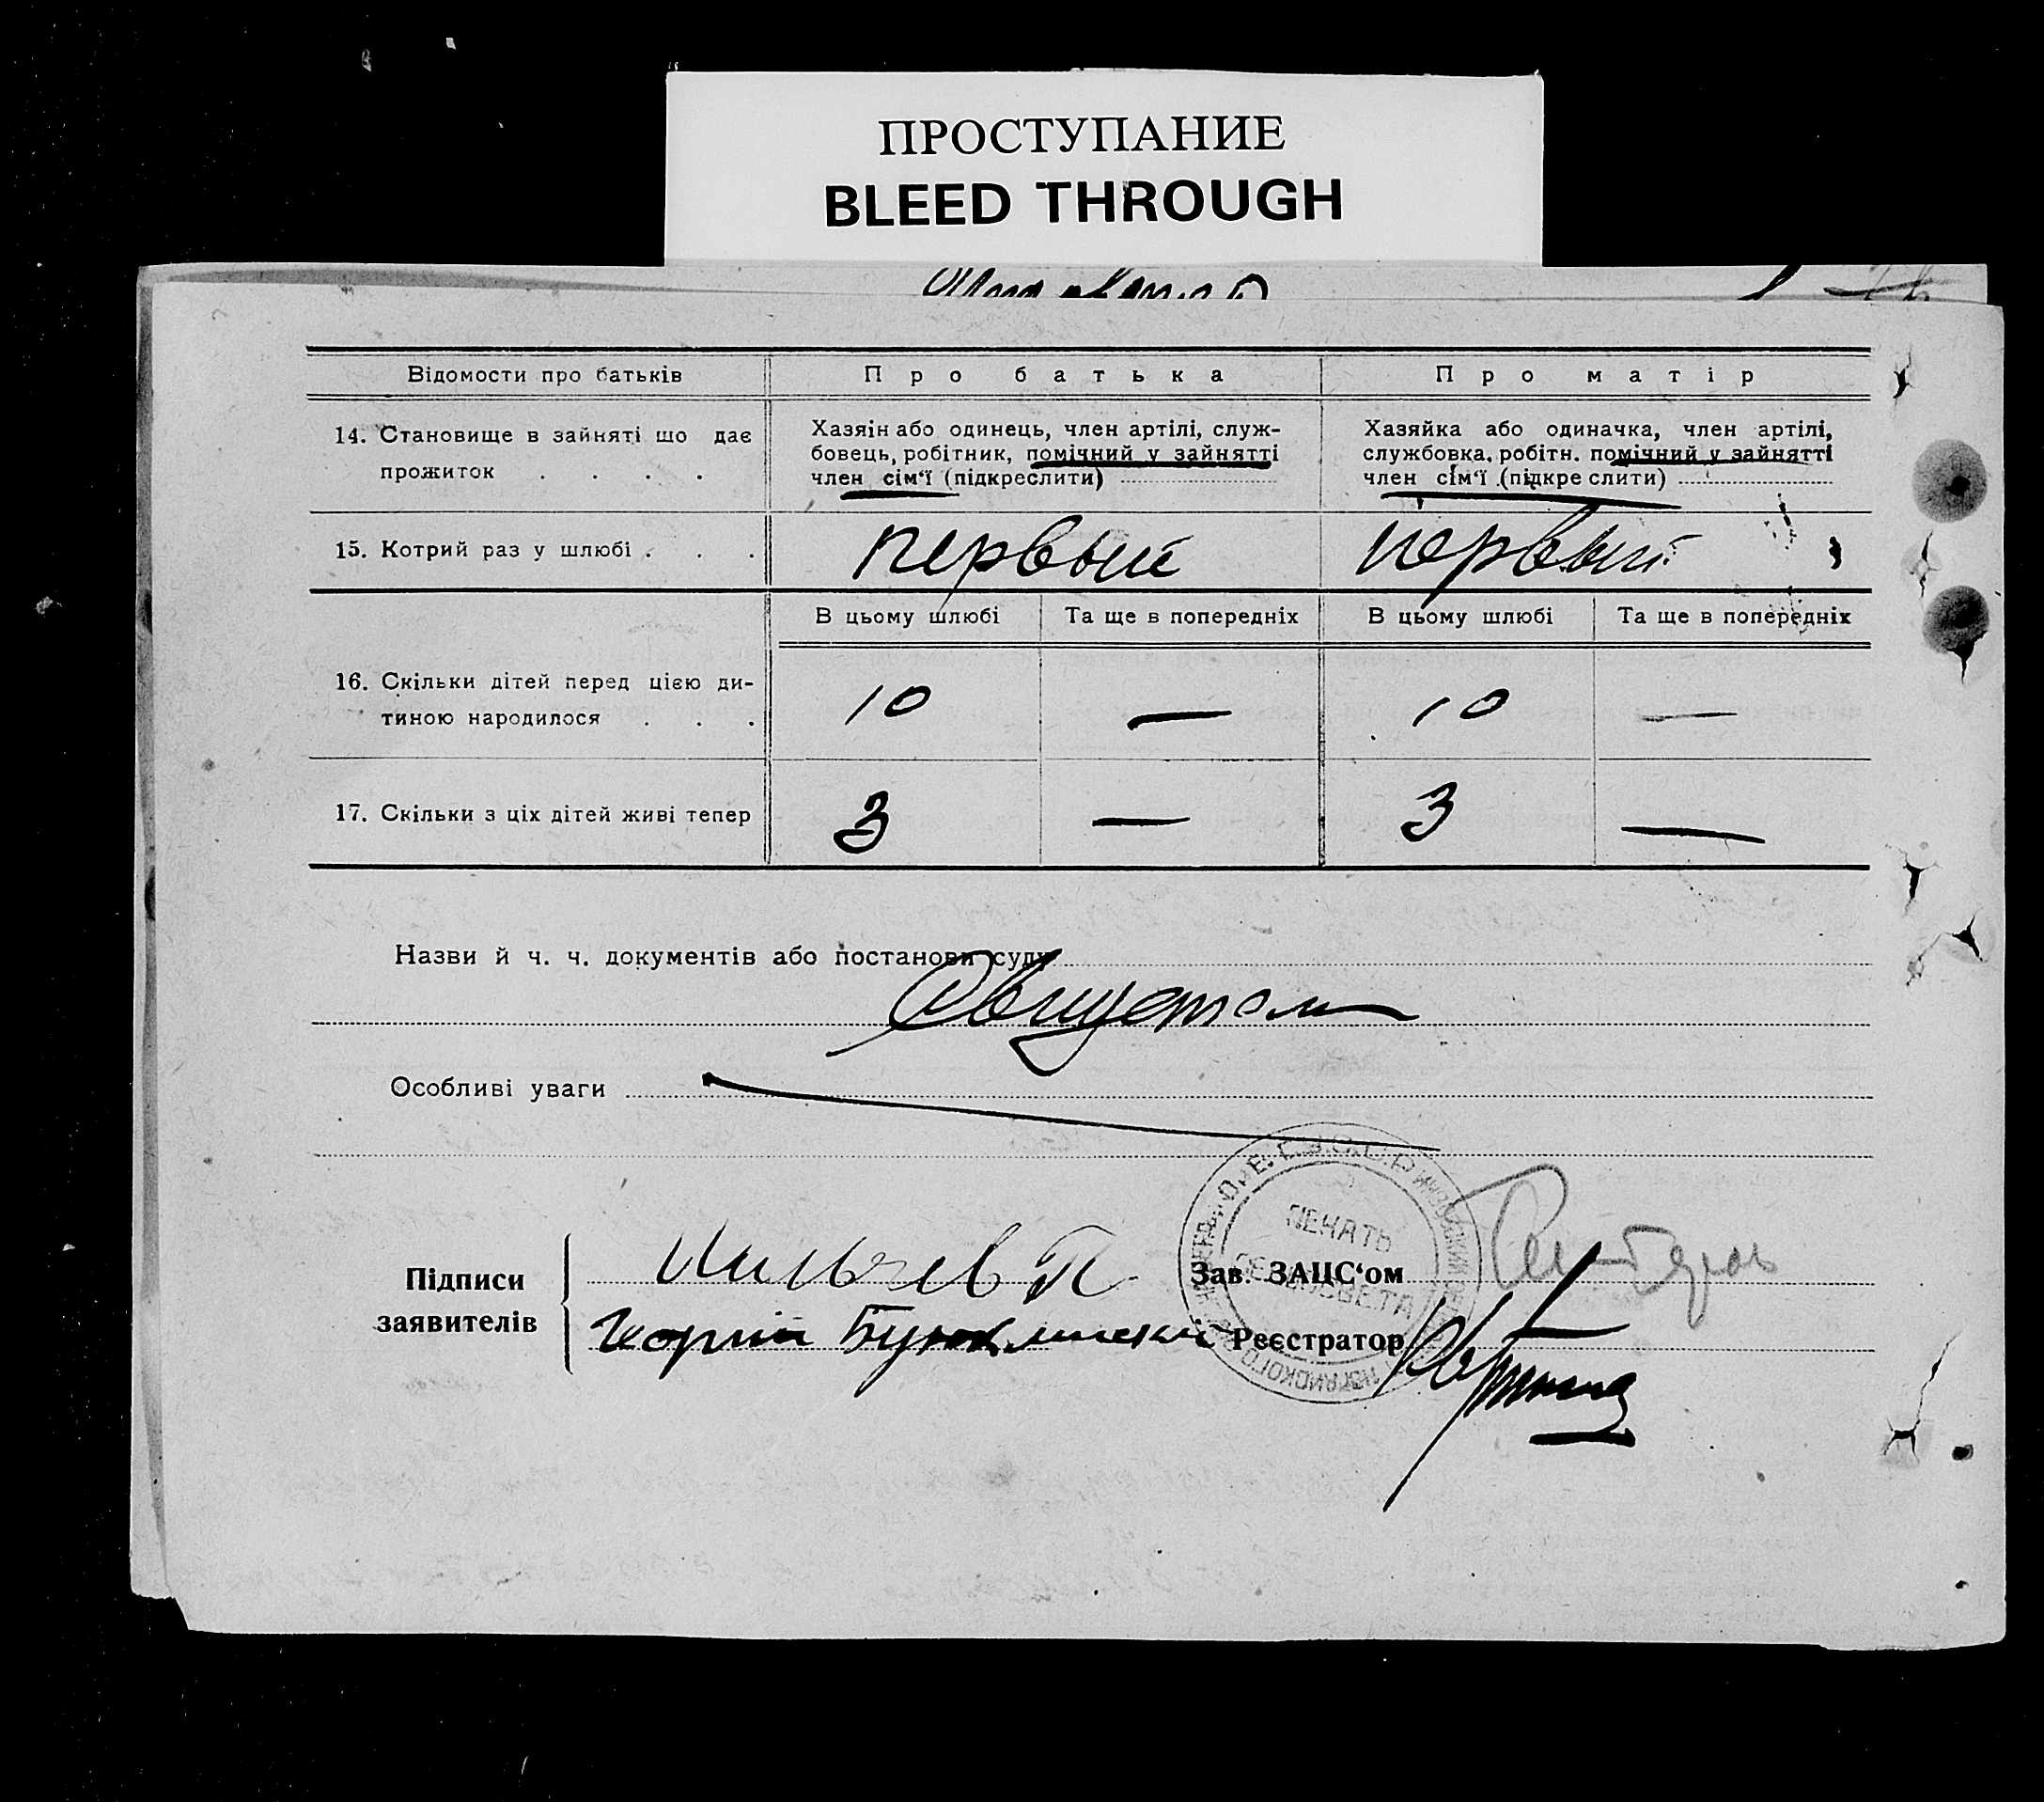 ПРОСТУПАНИЕ
BLEED THROUGH
Відомости про батьків
Про батька
Про матір
14. Становище в зайняті що дає
прожиток . . . .
Хазяін або одинець, член артілі, служ-
бовець, робітник, помічний у зайнятті
член сім‘ї (підкреслити)
Хазяйка або одиначка, член артілі,
службовка, робітн. помічний у зайнятті
член сім‘ї (підкреслити)
15. Котрий раз у шлюбі . . .
первый
первый
В цьому шлюбі
Та ще в попередніх
В цьому шлюбі
Та ще в попередніх
16. Скільки дітей перед цією ди-
тиною народилося . . .
10
—
10
—
17. Скільки з ціх дітей живі тепер
3
—
3
—
Назви й ч. ч. документів або постанови суду
Особливі уваги
Підписи
заявителів
Зав. ЗАЦС‘ом
Реєстратор
ПЕЧАТЬ